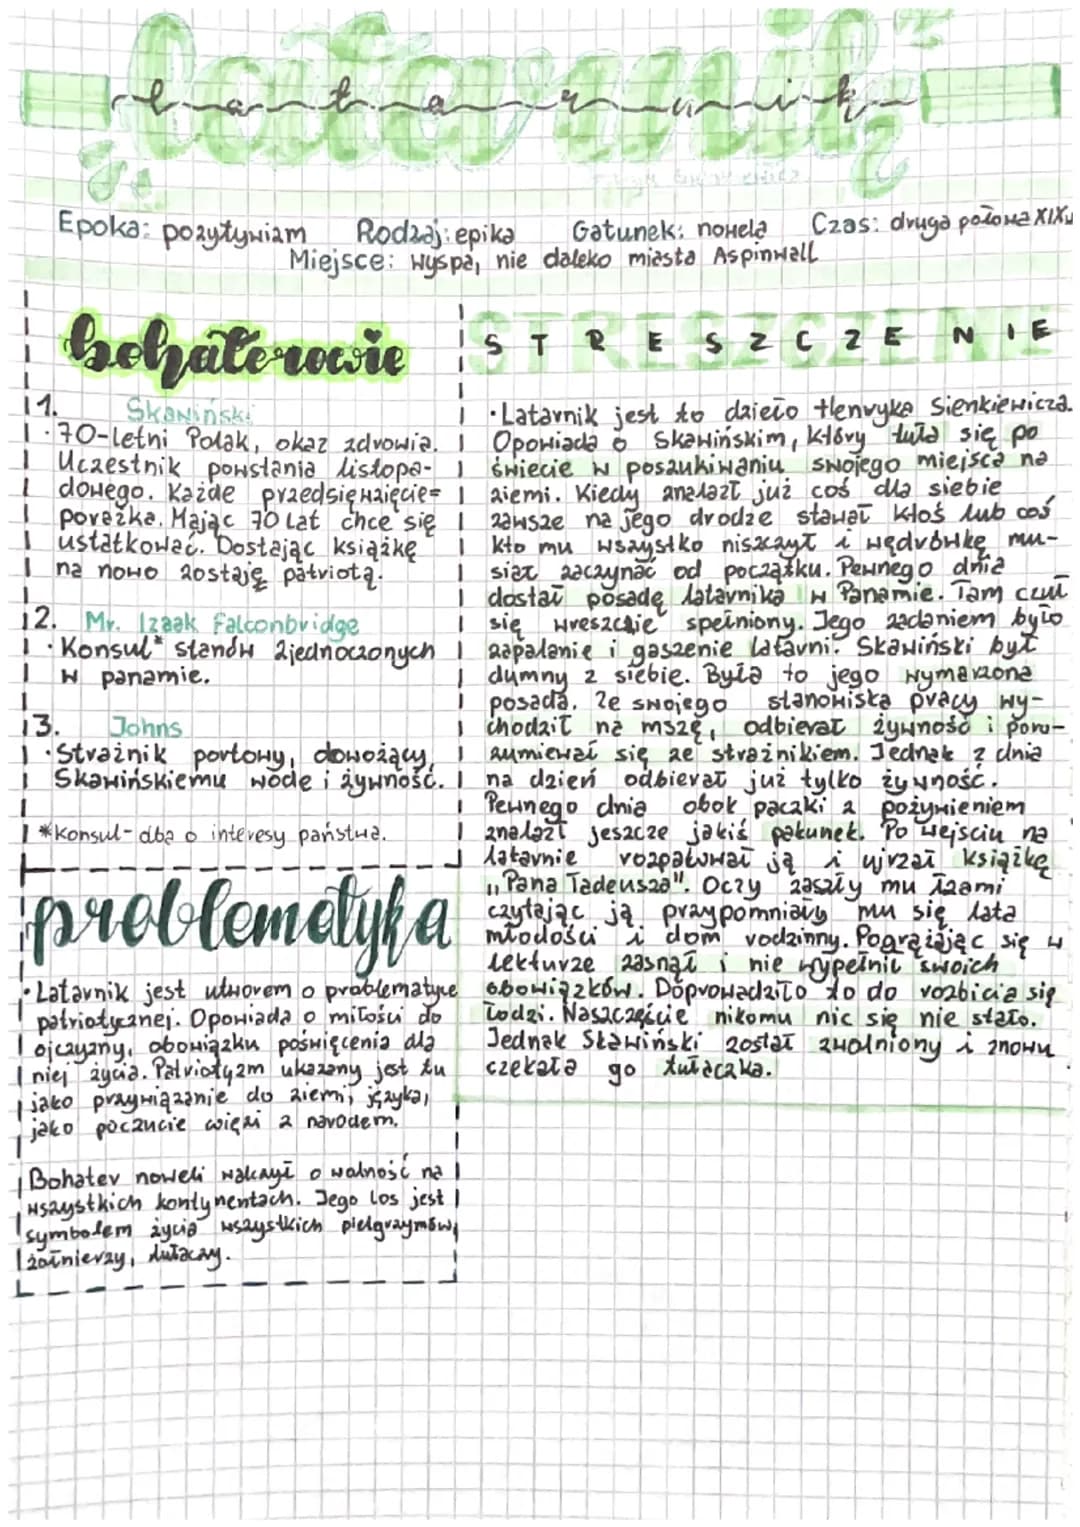 latarnik
Epoka: pozytywizm Rodzaj: epika Gatunek: nowela Czas: druga połowa XIXw
Miejsce: wyspa, nie daleko miasta Aspinwall
bohaterowie
1. Skawiński
· 70-letni Polak, okaz zdrowia.
Uczestnik powstania listopa-
dowego. Każde przedsięwzięcie=
porażka. Mając 70 lat chce się
ustatkować. Dostając książkę
na nowo zostaję patriotą.
2. Mr. Izaak Falconbridge
· Konsul* stanów zjednoczonych
w panamie.
3. Johns
· Strażnik portowy, dowożący
Skawińskiemu wodę i żywność.
*konsul- dba o interesy państwa.
problematyka
· Latarnik jest utworem o problematyce
patriotycznej. Opowiada o miłości do
ojczyzny, obowiązku poświęcenia dla
niej życia. Patriotyzm ukazany jest tu
jako przywiązanie do ziemi, języka,
jako poczucie więzi z narodem.
Bohater noweli walczył o wolność na
wszystkich kontynentach. Jego los jest
symbolem życia wszystkich pielgrzymów,
żołnierzy, tułaczy.
STRESZCZENIE
· Latarnik jest to dzieło Henryka Sienkiewicza.
Opowiada o Skawińskim, który tuła się po
świecie w poszukiwaniu swojego miejsca na
ziemi. Kiedy znalazł już coś dla siebie
zawsze na jego drodze stawał ktoś lub coś
kto mu wszystko niszczył i wędrówkę mu-
siał zaczynać od początku. Pewnego dnia
dostał posadę latarnika w Panamie. Tam czuł
się wreszcie spełniony. Jego zadaniem było
zapalanie i gaszenie latarni. Skawiński był
dumny z siebie. Była to jego wymarzona
posada. Ze swojego stanowiska pracy wy-
chodził na mszę, odbierał żywność i poro-
zumiewał się ze strażnikiem. Jednak z dnia
na dzień odbierał już tylko żywność.
Pewnego dnia obok paczki z pożywieniem
znalazł jeszcze jakiś pakunek. Po wejściu na
latarnie rozpakował ją i ujrzał książkę
"Pana Tadeusza". Oczy zaszły mu łzami
czytając ją przypomniały mu się lata
młodości i dom rodzinny. Pogrążając się w
lekturze zasnął i nie wypełnił swoich
obowiązków. Doprowadziło to do rozbicia się
łodzi. Naszczęście nikomu nic się nie stało.
Jednak Skawiński został zwolniony i znowu
czekała go tułaczka.